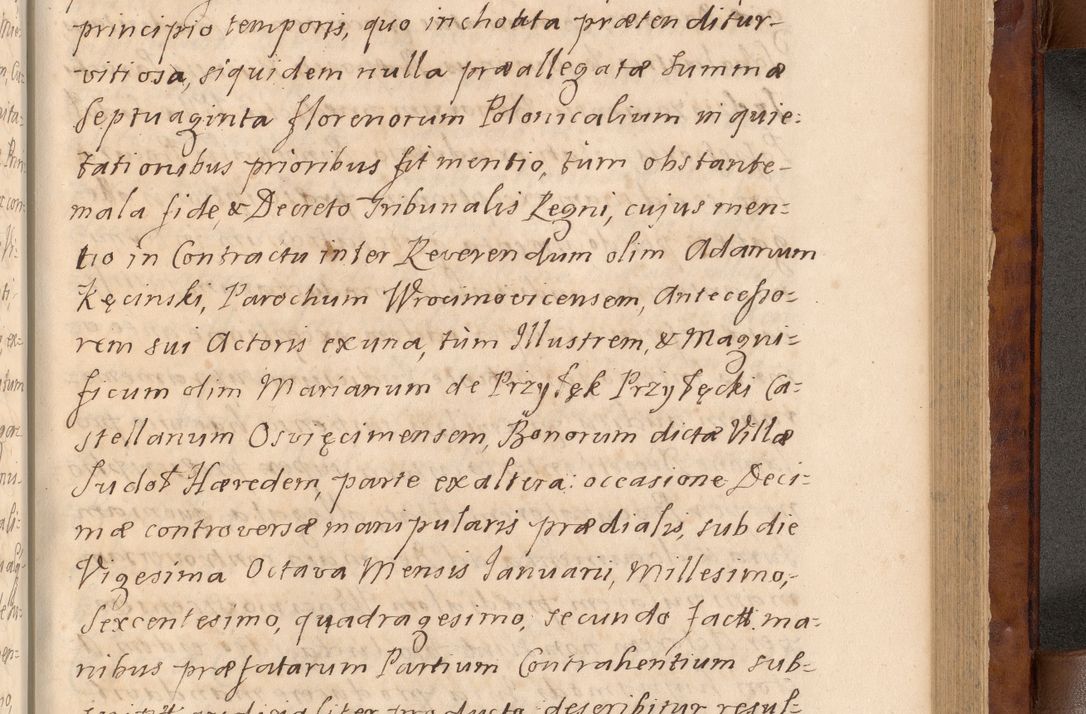 principio temporis, quo inchoata prætenditur
vitiosa, siquidem nulla præallegatæ Summæ
Septuaginta florenorum Polonicalium in quie=
tationibus prioribus fit mentio, tùm obstante
mala fide, & Decreto Tribunalis Regni, cujus men=
tio in Contractu inter Reverendum olim Adamum
Kęcinski, Parochum Wrocimovicensem, Antecesso=
rem sui Actoris ex una, tùm Illustrem, & Magni=
ficum olim Marianum de Przyłęk Przyłęcki Ca=
stellanum Osvięcimensem, Bonorum dictæ Villæ
Sudoł Hæredem, parte ex altera: occasione Deci=
mæ controversæ manipularis prædialis, sub die
Vigesima Octava Mensis Januarii, Millesimo,
Sexcentesimo, quadragesimo, secundo fact: ma=
nibus præfatarum Partium Contrahentium sub=
producto describitur resul=